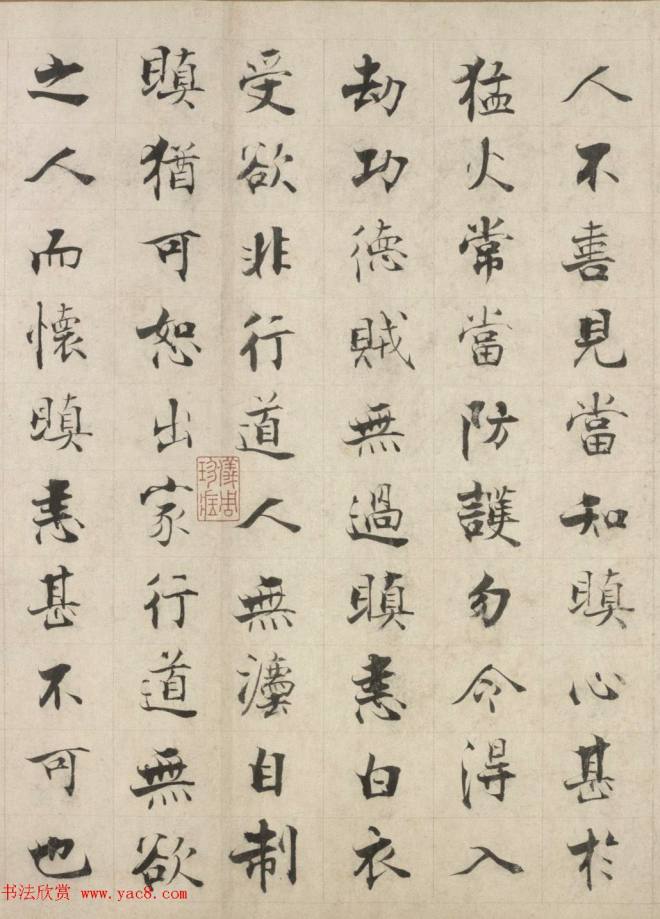 人不善見當知瞋心甚於
猛火常當防護勿令得入
劫功德賊無過瞋恚白衣
受欲非行道人無灋自制
瞋猶可恕出家行道無欲
之人而懷瞋恚甚不可也
儀周珍藏
书法欣赏 www.yac8.com